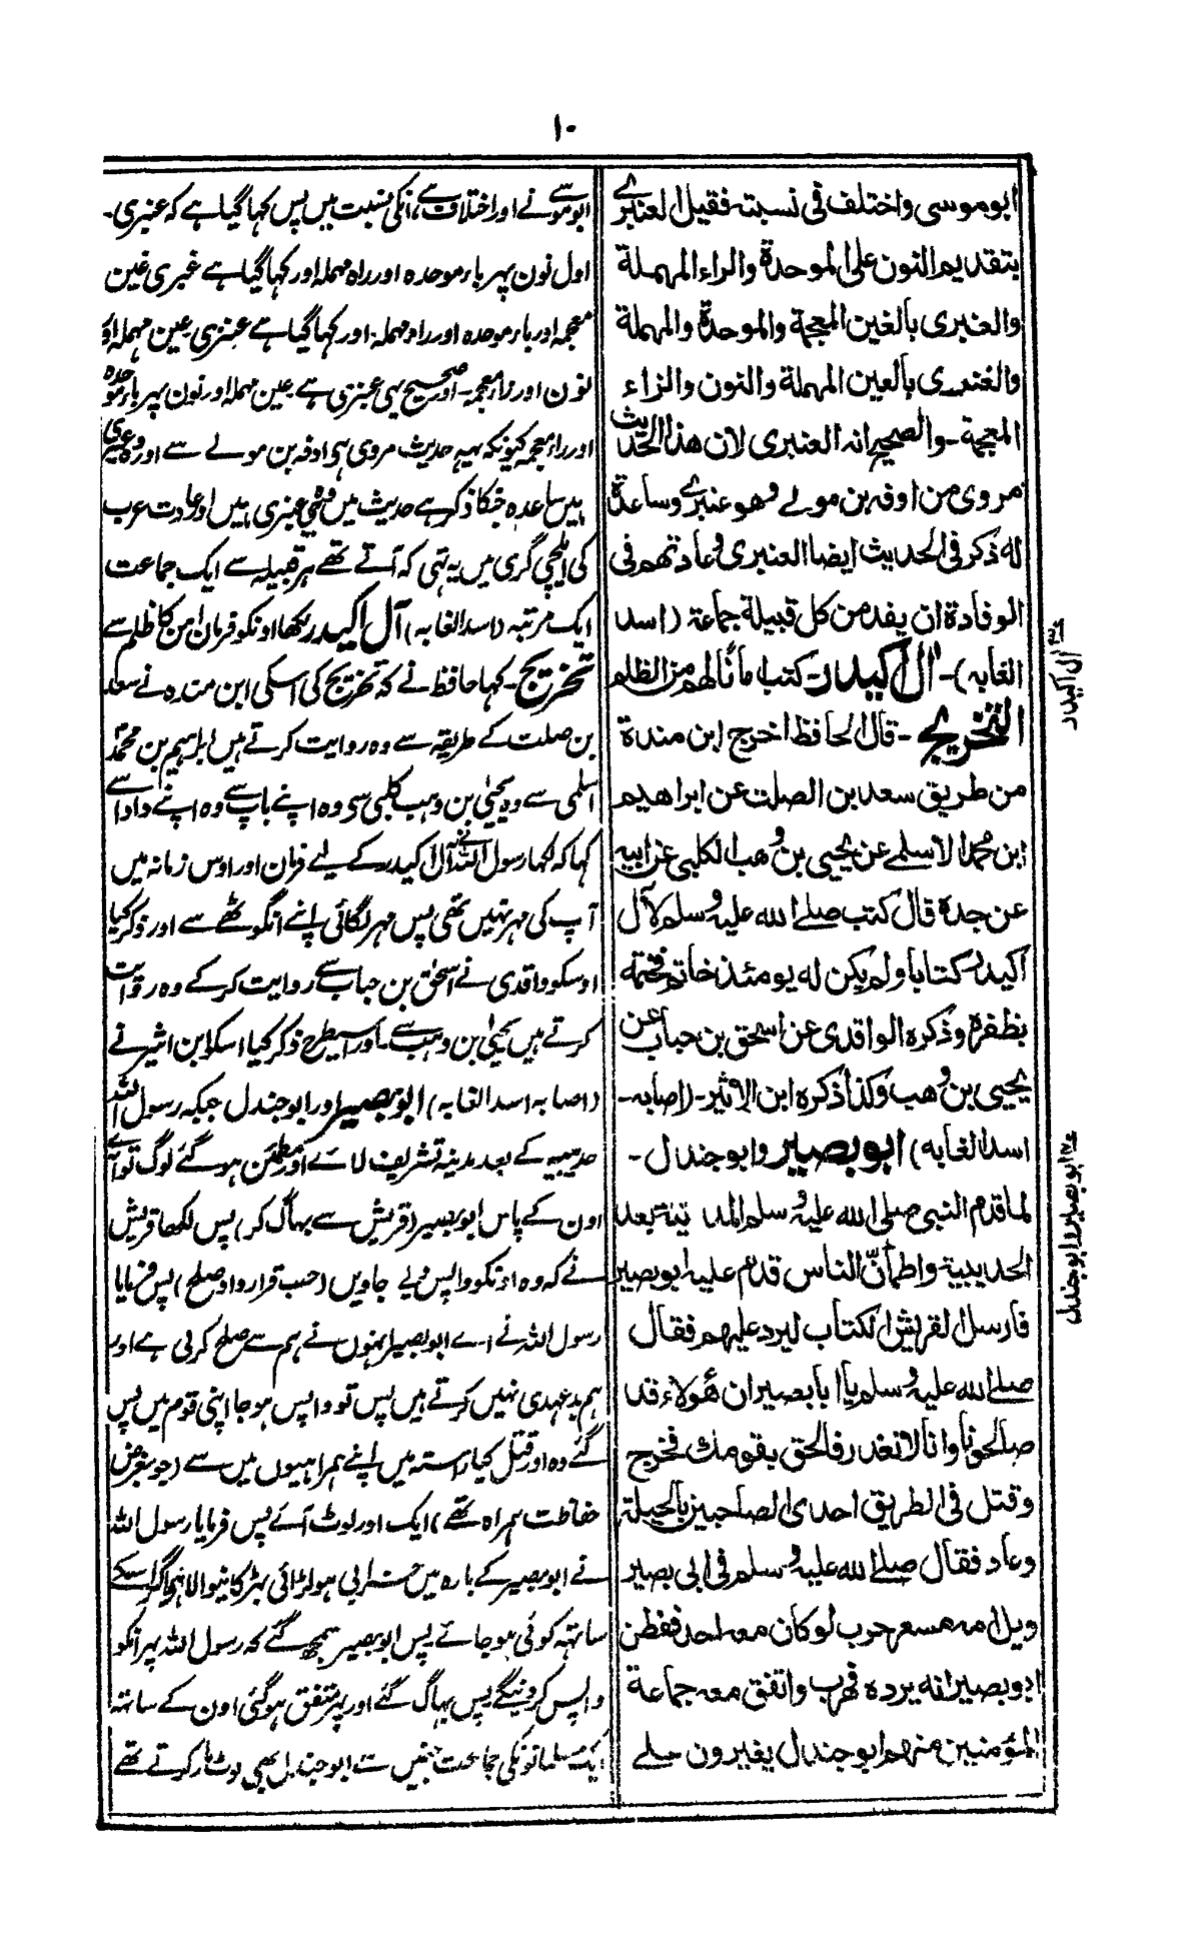 ۱۰
ابو موسی واختلف فی نسبته فقیل العنبرے
بتقدیم النون علی الموحدة والراء المهملة
والغبری بالغین المعجمة والموحدة والمهملة
والعنزی بالعین المهملة والنون والزاء
المعجمة ـ والصحیح انه العنبری لان هذا الحدیث
مروی من اوفہ بن مولے وهو عنبرے وساعدة
له ذکر فی الحدیث ایضا العنبری وعادتهم فی
الوفادة ان یفد من کل قبیلة جماعة (اسد
الغابه) ـ آل اکیدر ـ کتب مأنا لهم من الظلم
التخریج ـ قال الحافظ اخرج ابن مندة
من طریق سعد بن الصلت عن ابراهیم
ابن محمد الاسلمے عن یحیی بن وهب الکلبی عن ابیه
عن جدة قال کتب صلے الله علیه وسلم لآل
اکیدر کتابا ولم یکن له یومئذ خاتم فختمه
بظفرة وذکره الواقدی عن اسحق بن حباب عن
یحیی بن وهب وکذا ذکره ابن الاثیر ـ (اصابه ـ
اسد الغابه) ابو بصیر وابو جندل ـ
لما قدم النبی صلی الله علیه وسلم المدینة بعد
الحدیبیة واطمأنّ الناس قدم علیه ابو بصیر
فارسل القریش الکتاب لیرد علیهم فقال
صلے الله علیه وسلم یا ابا بصیر ان هٔولاء قد
صالحونا وانا لا نغدر فالحق بقومك فخرج
وقتل فی الطریق احدی الصاحبین بالحیلة
وعاد فقال صلے الله علیه وسلم فی ابی بصیر
ویل امه مسعر حرب لو کان معه احد ففطن
ابو بصیر انه یرده فهرب واتفق معه جماعة
المؤمنین منهم ابو جندل یغیرون علے
ابو موسے نے اور اختلاف ہے انکی نسبت میں پس کہا گیا ہے کہ عنبری ـ
اول نون پہر باء موحدہ اور راء مہملہ اور کہا گیا ہے غبری غین
معجمہ اور باء موحدہ اور راء مہملہ ـ اور کہا گیا ہے عنزی عین مہملہ اور
نون اور زاء معجمہ ـ اور صحیح یہی عنبری ہے عین مہملہ اور نون پہر باء موحدہ
اور راء معجمہ کیونکہ یہہ حدیث مروی ہی اوفہ بن مولے سے اور وہ عنبری
ہیں ساعدہ جنکا ذکر ہے حدیث میں وہ بھی عنبری ہیں اور عادت عرب
کی ایلچی گری میں یہ تہی کہ آتے تھے ہر قبیلہ سے ایک جماعت
ایک مرتبہ (اسد الغابہ) آل اکیدر لکھا اونکو فرمان امن کا ظلم سے
تخریج ـ کہا حافظ نے کہ تخریج کی اسکی ابن مندہ نے سعد
بن صلت کے طریقہ سے وہ روایت کرتے ہیں ابراہیم بن محمد
اسلمی سے وہ یحییٰ بن وہب کلبی سے وہ اپنے باپ سے وہ اپنے دادا سے
کہا کہ لکھا رسول اللہ نے آل اکیدر کے لیے فرمان اور اوس زمانہ میں
آپ کی مہر نہیں تھی پس مہر لگائی اپنے انگوٹھے سے اور ذکر کیا
اوسکو واقدی نے اسحٰق بن حباب سے روایت کر کے وہ روایت
کرتے ہیں یحییٰ بن وہب سے ـ اور اسیطرح ذکر کیا اسکو ابن اثیر نے
(اصابہ اسد الغابہ) ابو بصیر اور ابو جندل جبکہ رسول اللہ
حدیبیہ کے بعد مدینہ تشریف لائے اور مطمئن ہو گئے لوگ تو آئے
اون کے پاس ابو بصیر (قریش سے بہاگ کر) پس لکھا قریش
نے کہ وہ اونکو واپس دیے جاویں (حسب قرار داد صلح) پس فرمایا
رسول اللہ نے اے ابو بصیر انہوں نے ہم سے صلح کر لی ہے اور
ہم بد عہدی نہیں کرتے ہیں پس تو واپس ہو جا اپنی قوم میں پس
گئے وہ اور قتل کیا راستہ میں اپنے ہمراہیوں میں سے (جو بغرض
حفاظت ہمراہ تھے) ایک اور لوٹ آئے پس فرمایا رسول اللہ
نے ابو بصیر کے بارہ میں خرابی ہو لڑائی بہڑکانیوالا ہے اگر اسکے
ساتہہ کوئی ہو جائے پس ابو بصیر سمجھ گئے کہ رسول اللہ پہر انکو
واپس کر دینگے پس بہاگ گئے اور متفق ہو گئی اون کے ساتہہ
ایک مسلمانونکی جماعت جنمیں سے ابو جندل بھی لوٹ مار کرتے تھے
آل اکیدر
ابو بصیر وابو جندل